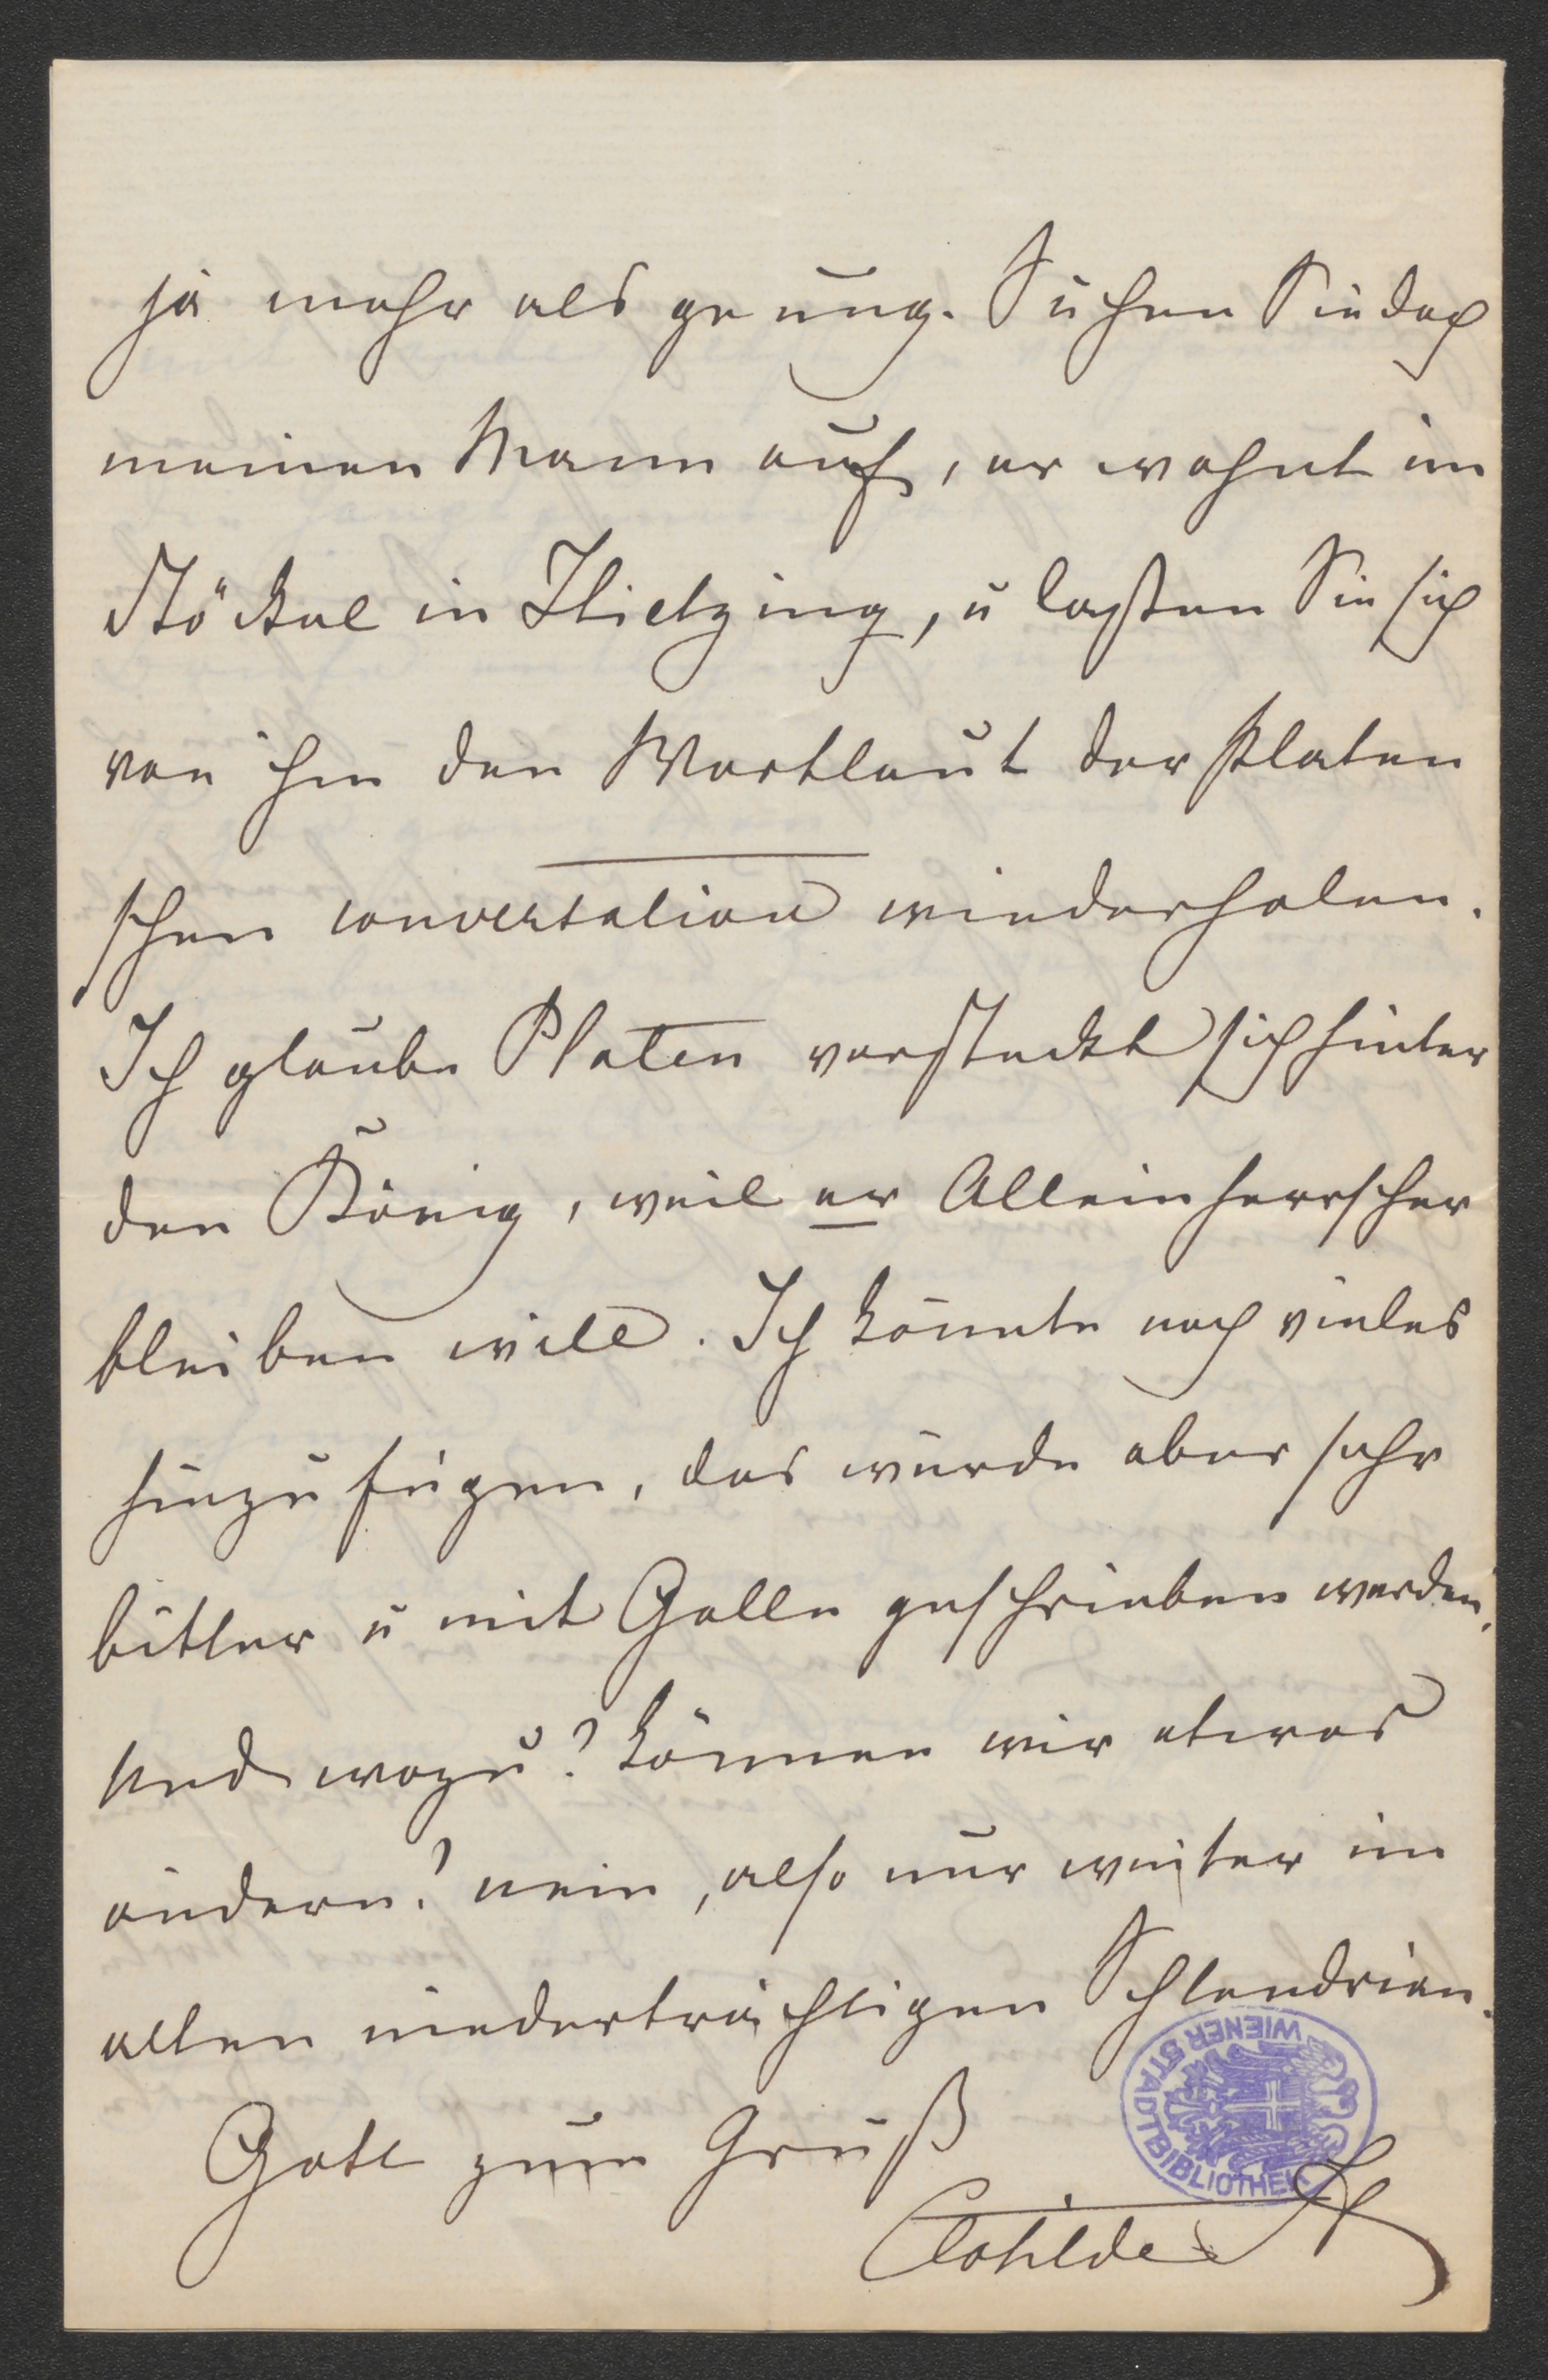 ja mehr als genung. Suchen Sie doch
meinen Mann auf, er wohnt im
Stöckel in Hietzing, u laßen Sie sich
von ihm den Wortlaut der Platen
schen conversation wiederholen.
Ich glaube Platen versteckt sich hinter
den König, weil er Alleinherrscher
bleiben will. Ich könnte noch vieles
hinzufügen, das würde aber sehr
bitter u mit Galle geschrieben werden,
und wozu? können wir etwas
ändern? nein, also nur weiter im
alten niederträchtigen Schlendrian.
Gott zum Gruß
Clotilde
WIENER STADTBIBLIOTHEK